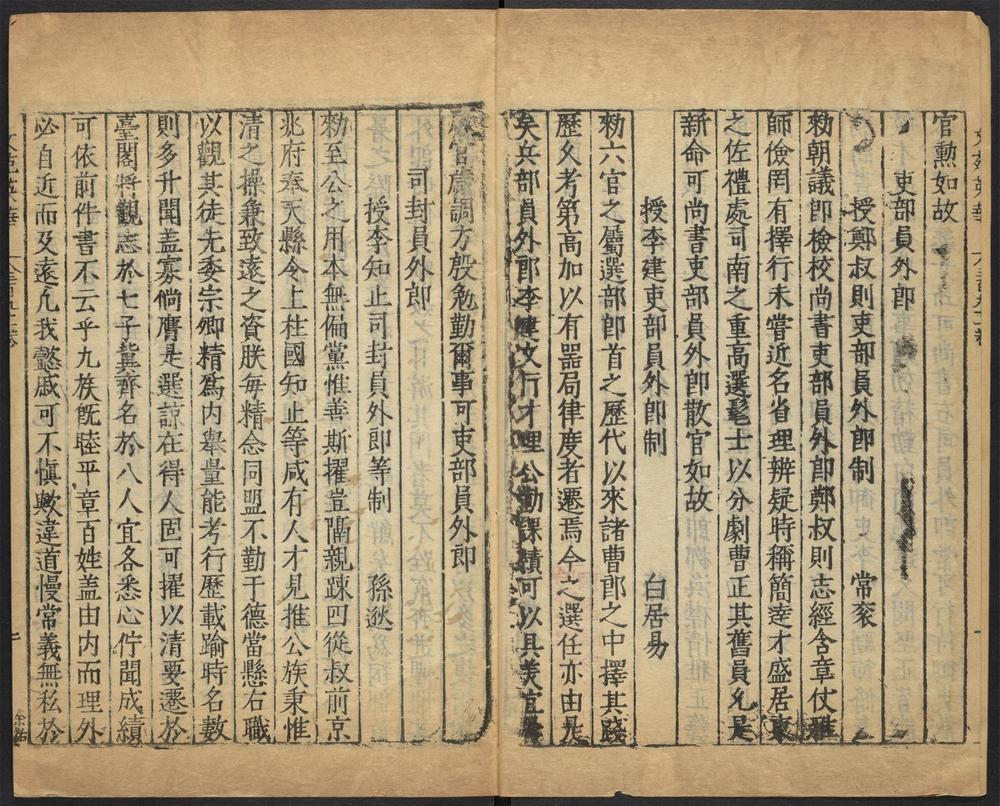 官勲如故
吏部員外郎
授鄭叔則吏部員外郎制 常衮
勑朝議郎檢校尚書吏部員外郎鄭叔則志經含章仗雅
師儉罔有擇行未嘗近名省理辨疑時稱簡達才盛居東
之佐禮處司南之重高選髦士以分劇曹正其舊員允是
新命可尚書吏部員外郎散官如故
授李建吏部員外郎制 白居易
勑六官之屬選部郎首之歷代以來諸曹郎之中擇其踐
歷久考第高加以有器局律度者遷焉今之選任亦由是
矣兵部員外郎李建文行才理公勤課績可以具美宜
官廉調方殷勉勤爾事可吏部員外郎
司封員外郎
授李知止司封員外郎等制 孫逖
勑至公之用本無偏黨惟善斯擢豈隔親疎四從叔前京
兆府奉天縣令上柱國知止等咸有人才見推公族秉惟
清之操兼致遠之資朕每精念同盟不勤于德當懸右職
以觀其徒先委宗卿精爲内舉量能考行歷載踰時名數
則多升聞盖寡倘膺是選諒在得人固可擢以清要遷於
臺閣將觀志於七子冀齊名於八人宜各悉心佇聞成績
可依前件書不云乎九族旣睦平章百姓盖由内而理外
必自近而及遠凡我懿戚可不愼歟違道慢常義無私於